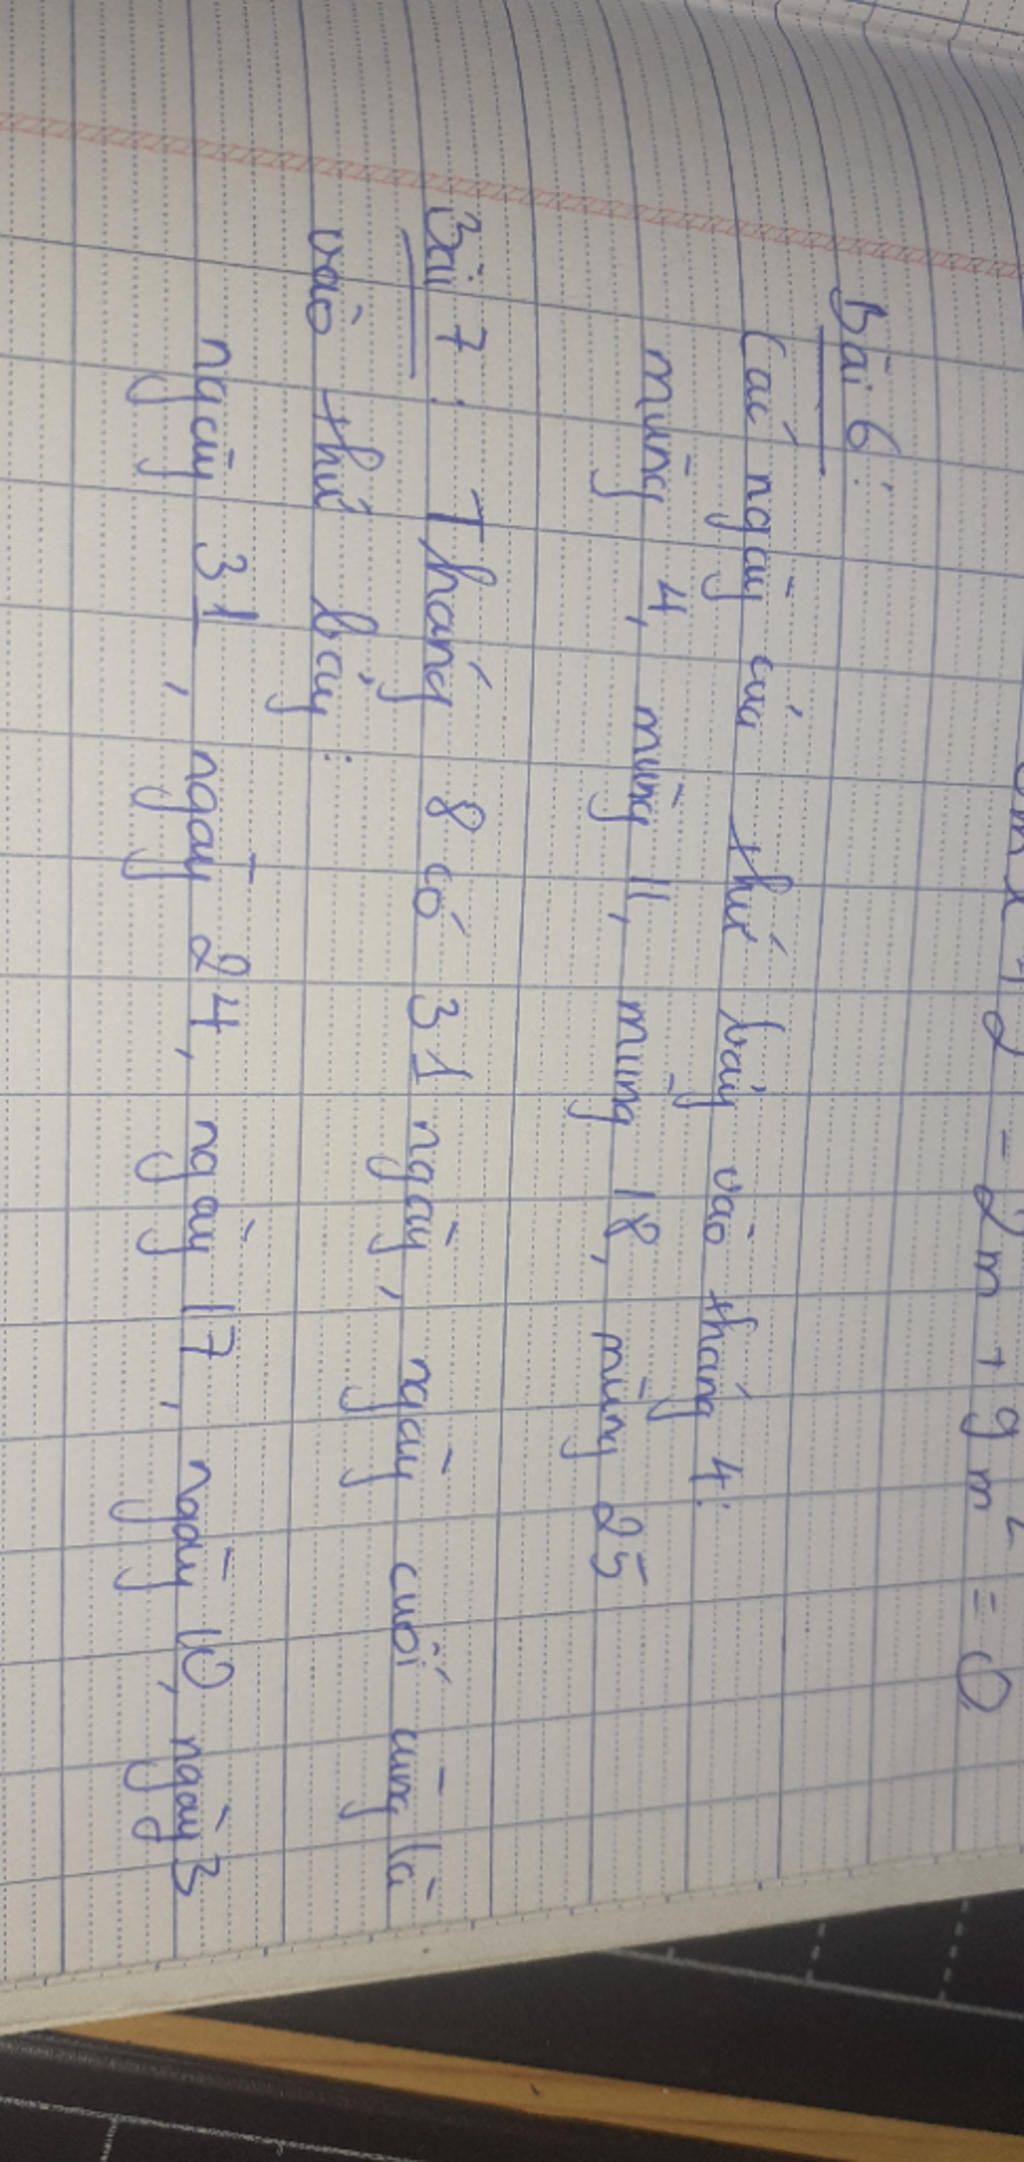 - 2m + 9m² = 0
Bài 6:
Các ngày của thứ bảy vào tháng 4:
mùng 4, mùng 11, mùng 18, mùng 25
Bài 7: Tháng 8 có 31 ngày, ngày cuối cùng là
vào thứ bảy:
ngày 31, ngày 24, ngày 17, ngày 10, ngày 3